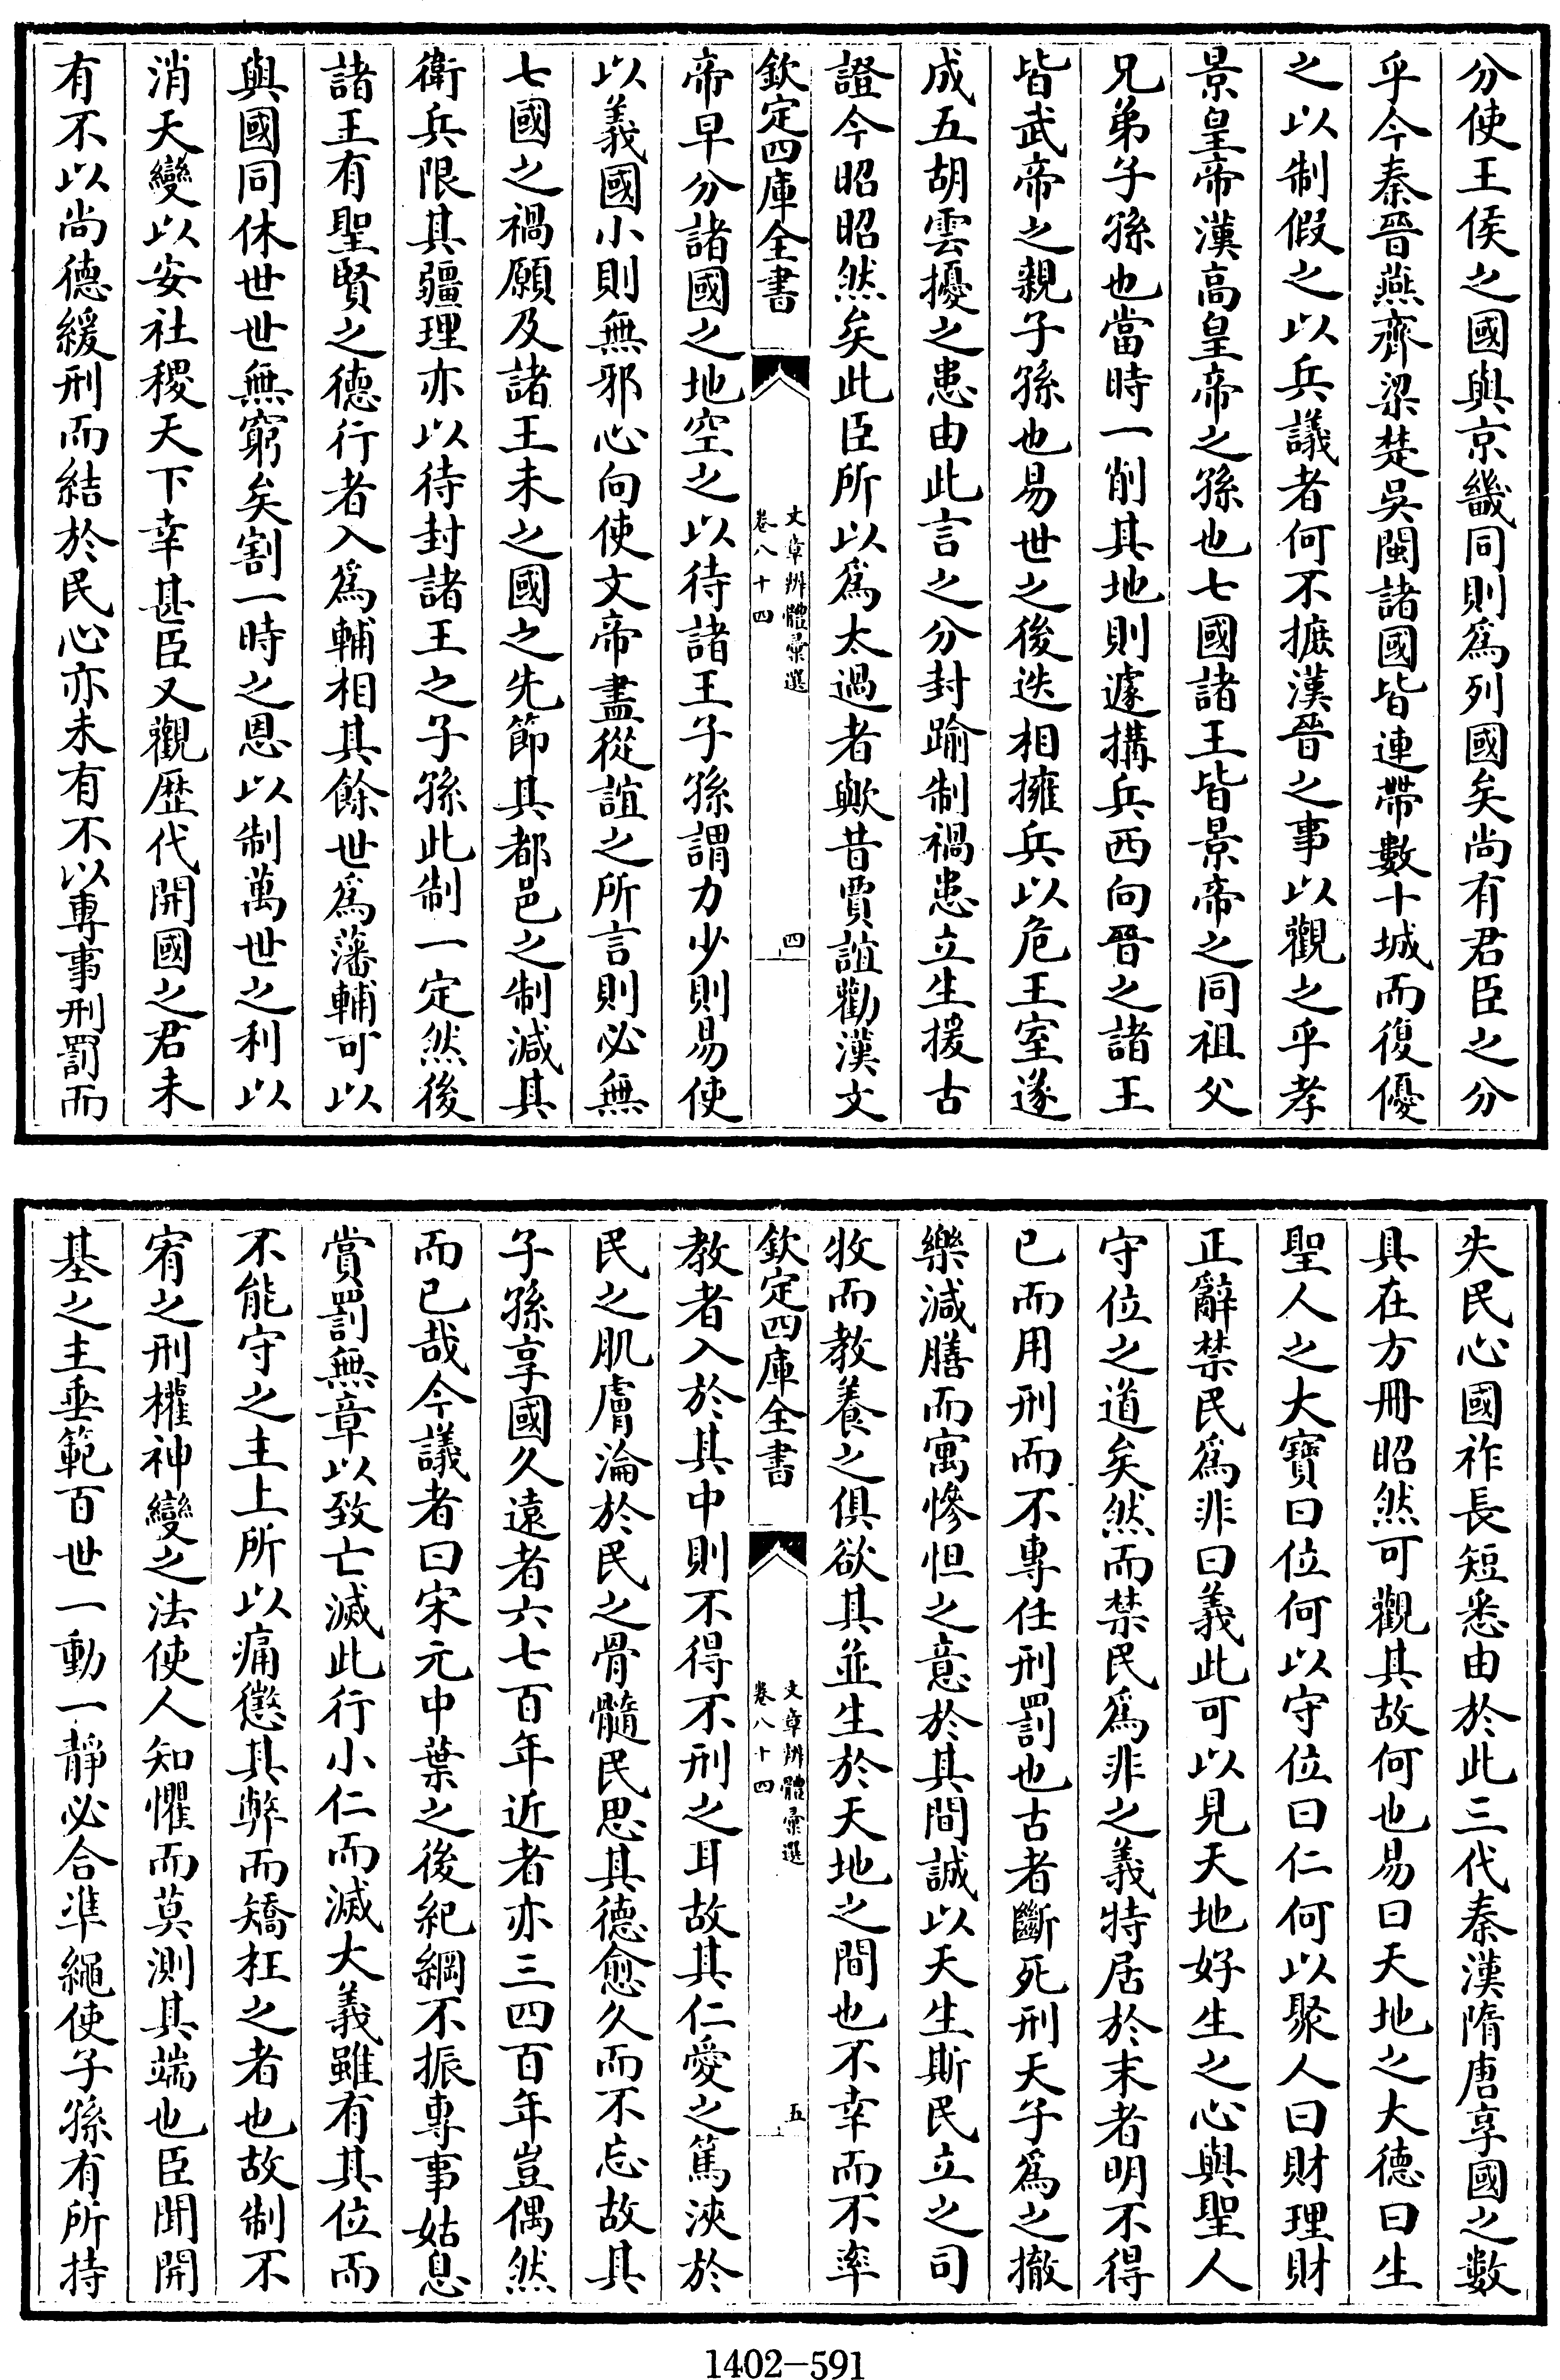 分使王侯之國與京畿同則爲列國矣尚有君臣之分
乎今秦晉燕齊梁楚吳閩諸國皆連帶數十城而復優
之以制假之以兵議者何不摭漢晉之事以觀之乎孝
景皇帝漢高皇帝之孫也七國諸王皆景帝之同祖父
兄弟子孫也當時一削其地則遽搆兵西向晉之諸王
皆武帝之親子孫也易世之後迭相擁兵以危王室遂
成五胡雲擾之患由此言之分封踰制禍患立生援古
證今昭昭然矣此臣所以爲太過者歟昔賈誼勸漢文
欽定四庫全書
文章辨體彙選
卷八十四
四
帝早分諸國之地空之以待諸王子孫謂力少則易使
以義國小則無邪心向使文帝盡從誼之所言則必無
七國之禍願及諸王未之國之先節其都邑之制減其
衛兵限其疆理亦以待封諸王之子孫此制一定然後
諸王有聖賢之德行者入爲輔相其餘世爲藩輔可以
與國同休世世無窮矣割一時之恩以制萬世之利以
消天變以安社稷天下幸甚臣又觀歷代開國之君未
有不以尚德緩刑而結於民心亦未有不以專事刑罰而
失民心國祚長短悉由於此三代秦漢隋唐享國之數
具在方冊昭然可觀其故何也易曰天地之大德曰生
聖人之大寶曰位何以守位曰仁何以聚人曰財理財
正辭禁民爲非曰義此可以見天地好生之心與聖人
守位之道矣然而禁民爲非之義特居於末者明不得
已而用刑而不專任刑罰也古者斷死刑天子爲之撤
樂減膳而寓慘怛之意於其間誠以天生斯民立之司
牧而教養之俱欲其並生於天地之間也不幸而不率
欽定四庫全書
文章辨體彙選
卷八十四
五
教者入於其中則不得不刑之耳故其仁愛之篤浹於
民之肌膚淪於民之骨髓民思其德愈久而不忘故其
子孫享國久遠者六七百年近者亦三四百年豈偶然
而已哉今議者曰宋元中葉之後紀綱不振專事姑息
賞罰無章以致亡滅此行小仁而滅大義雖有其位而
不能守之主上所以痛懲其弊而矯枉之者也故制不
宥之刑權神變之法使人知懼而莫測其端也臣聞開
基之主垂範百世一動一靜必合準繩使子孫有所持
1402—591